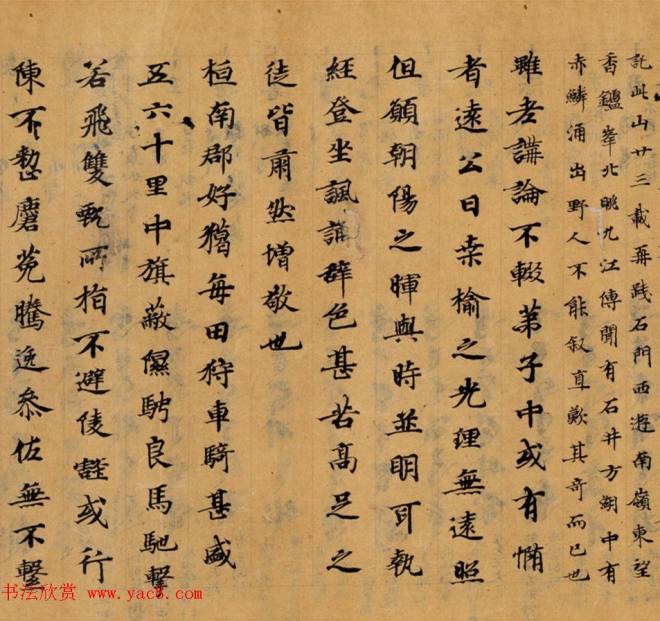 託此山廿三載再踐石門西遊南嶺東望
香鑪峯北眺九江傳聞有石井方湖中有
赤鱗涌出野人不能叙直歎其奇而已也
雖老講論不輟苐子中或有惰
者遠公曰桒榆之光理無遠照
但願朝陽之暉與時並明耳執
經登坐諷誦辞色甚苦高足之
徒皆肅然增敬也
桓南郡好獦每田狩車騎甚盛
五六十里中旗蔽隰騁良馬馳擊
若飛雙甄所指不避陵壑或行
陳不整麏菟騰逸叅佐無不繫
书法欣赏 www.yac8.com